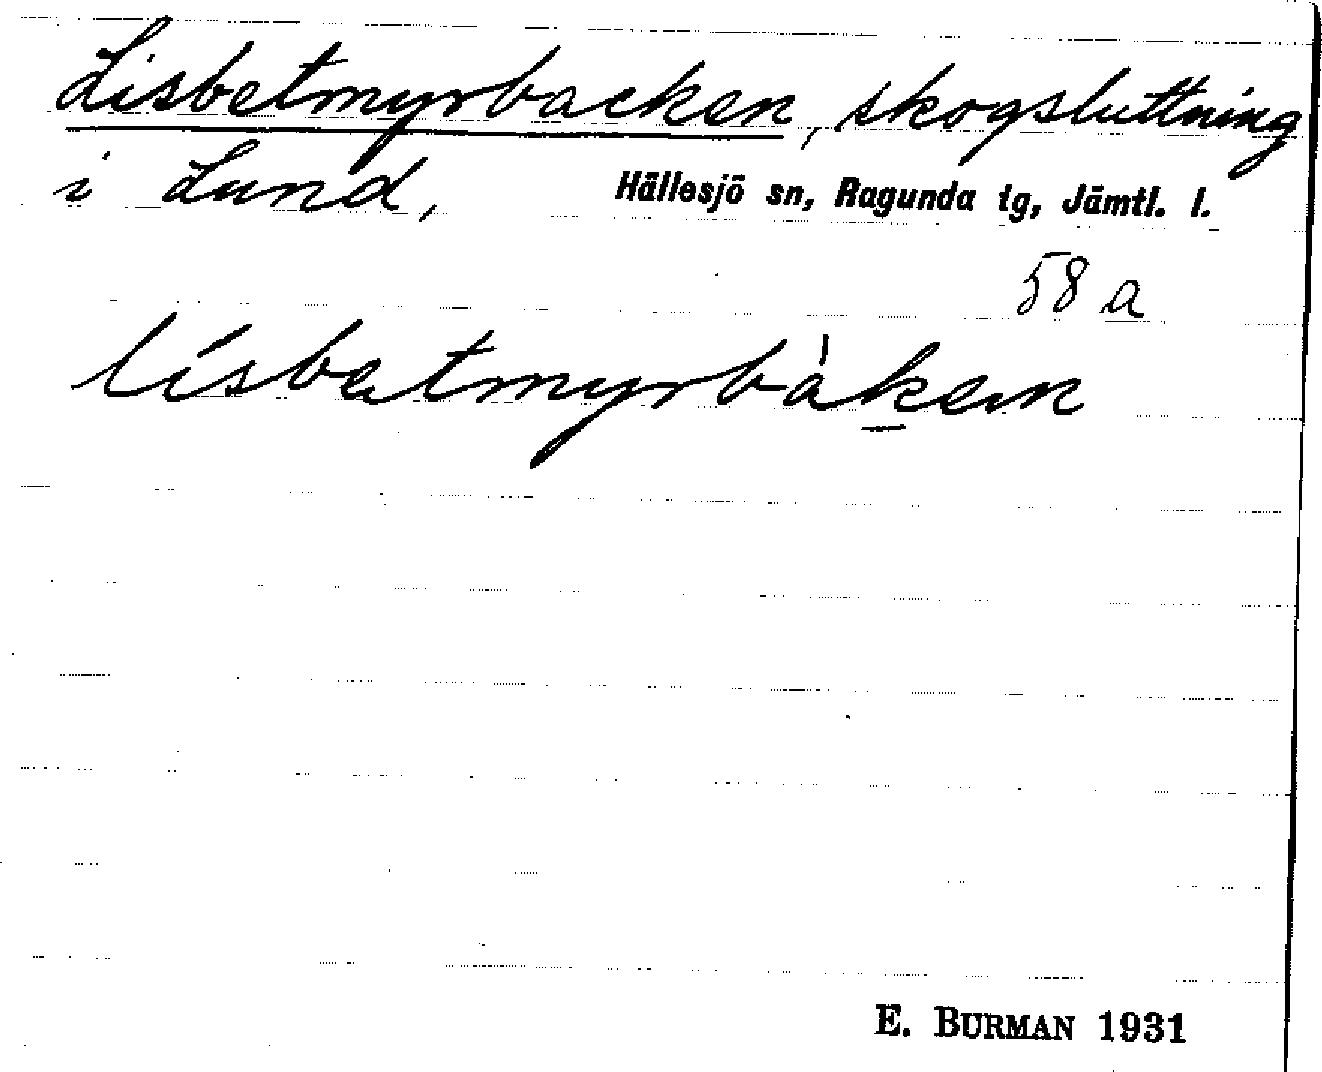 Lisbetmyrbacken, skogsluttning
i Lund, Hällesjö sn, Ragunda tg, Jämtl. l.
58 a
lísbetmyrbàken
E. BURMAN 1931